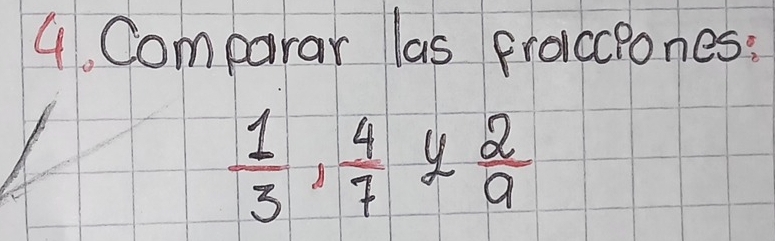 4. Comparar las fracciones:
1/3, 4/7 y 2/9